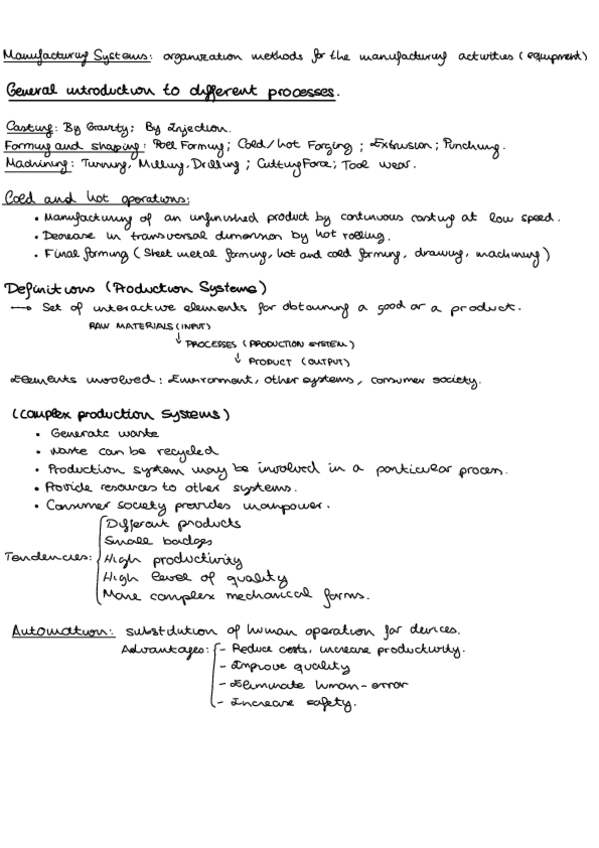 Manufacturing Systems: organization methods for the manufacturing activities (equipment)
General introduction to different processes.
Casting: By Gravity; By Injection.
Forming and shaping: Roll Forming; Cold/hot Forging; Extrusion; Punching.
Machining: Turning, Milling, Drilling; Cutting Force; Tool wear.
Cold and hot operations:
• Manufacturing of an unfinished product by continuous casting at low speed.
• Decrease in transversal dimension by hot rolling.
• Final forming (Sheet metal forming, hot and cold forming, drawing, machining)
Definitions (Production Systems)
→ Set of interactive elements for obtaining a good or a product.
RAW MATERIALS (INPUT)
↓ PROCESSES (PRODUCTION SYSTEM)
↓ PRODUCT (OUTPUT)
Elements involved: Environment, other systems, consumer society.
(Complex production Systems)
• Generate waste
• Waste can be recycled
• Production system may be involved in a particular process.
• Provide resources to other systems.
• Consumer society provides manpower.
Different products
Small badges
Tendencies: High productivity
High level of quality
More complex mechanical forms.
Automation: substitution of human operation for devices.
Advantages: - Reduce costs, increase productivity.
- Improve quality
- Eliminate human-error
- Increase safety.